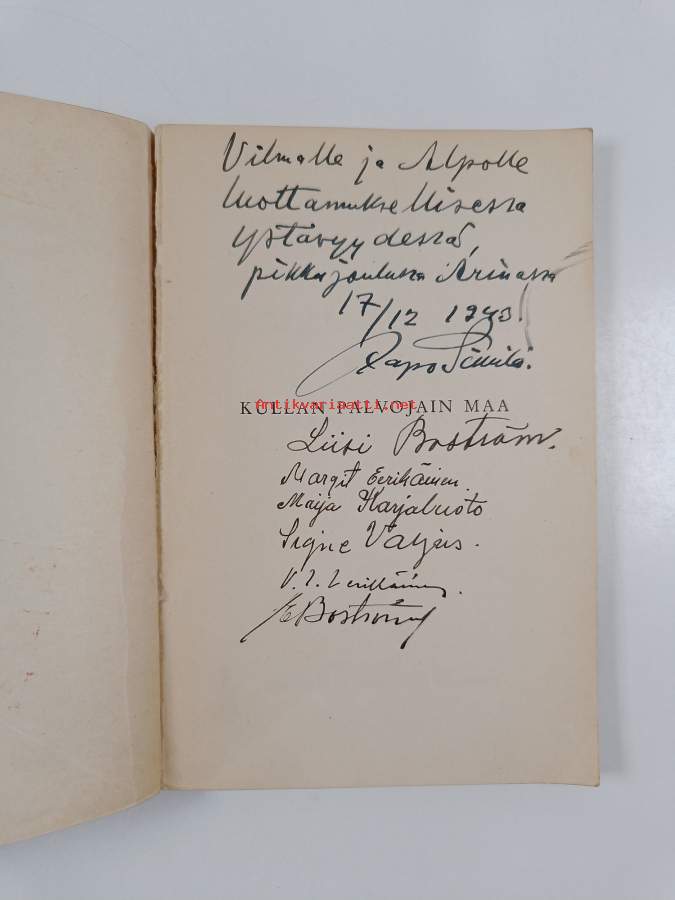 Vilmalle ja Alpolle
luottamuksellisessa
ystävyydessä,
pikkujouluna Arinassa
17/12 1943.
KULLAN PALVOJAIN MAA
Antikvariaatti.net
Liisi Boström.
Margit Eerikäinen.
Maija Karjaluoto
Signe
E Boström